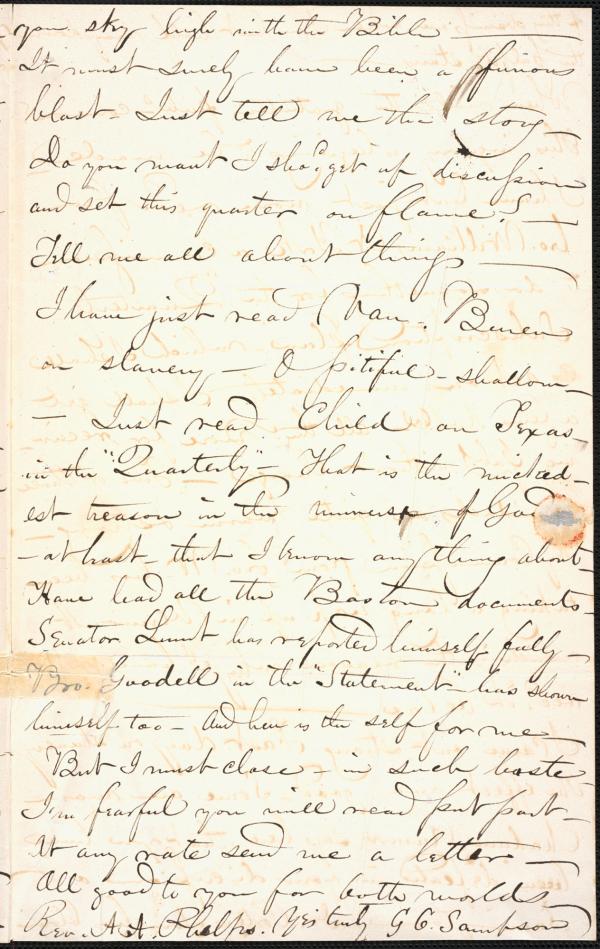 you sky high with the Bible —
It must surely have been a furious
blast — Just tell me the story —
Do you want I shod. get up discussion
and set this quarter on flame? —
Tell me all about things —
I have just read Van. Buren
on slavery — O pitiful — shallow —
— Just read Child on Texas —
in the "Quarterly" — That is the wicked-
est treason in the universe of God
— at least — that I know any thing about —
Have had all the Boston documents —
Senator Lunt has reported himself fully —
Bro. Goodell in the "Statement" has shown
himself too — And his is the self for me —
But I must close — in such haste
I'm fearful you will read but part —
At any rate send me a letter —
All good to you for both worlds
Rev. A. A. Phelps. Yrs truly G C. Sampson